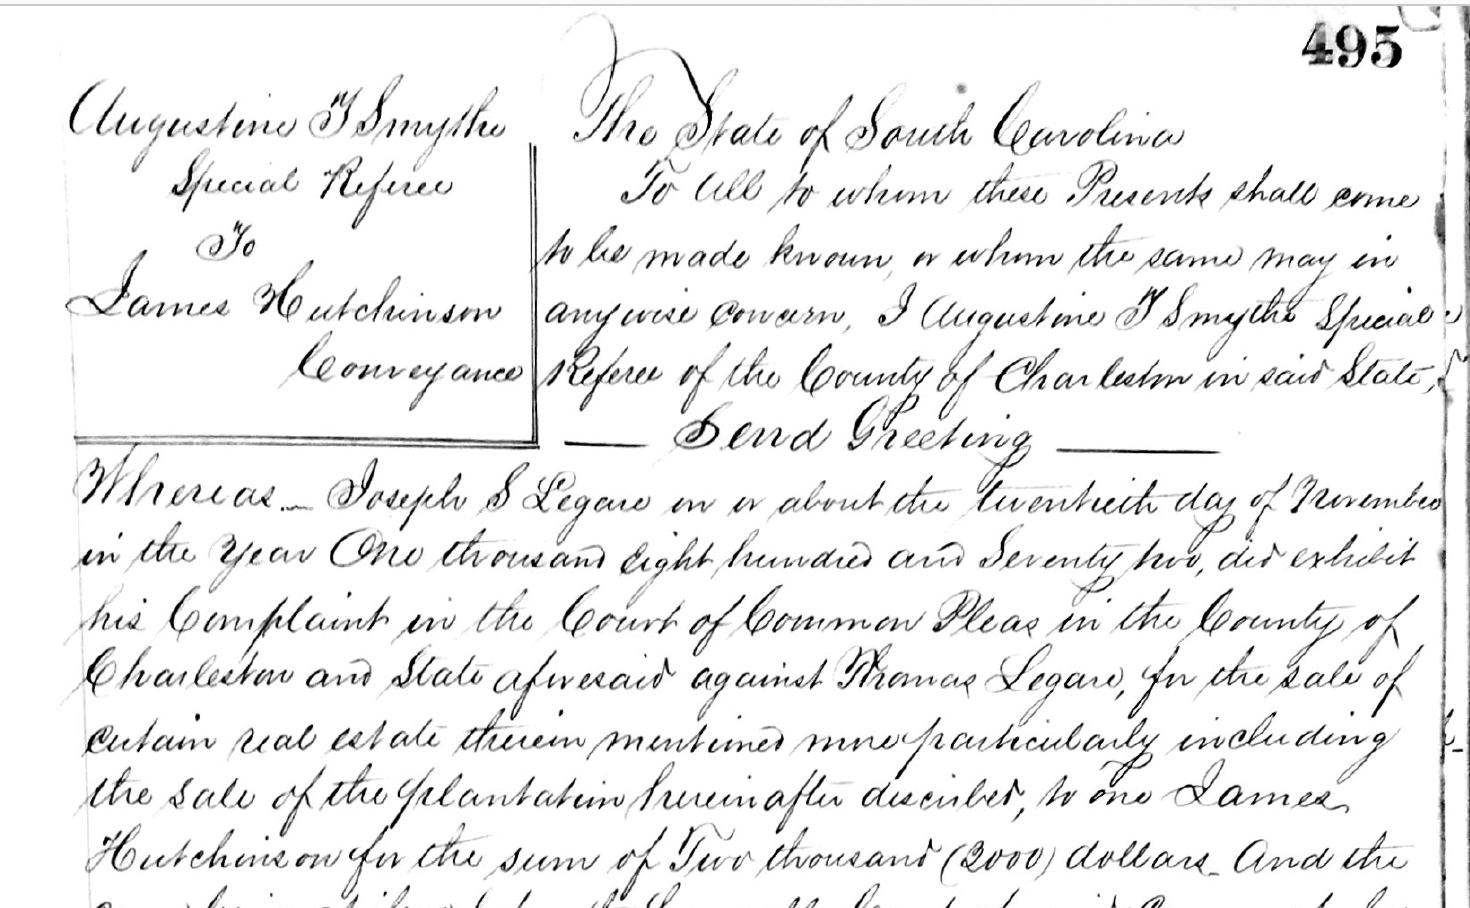 495
Augustine T Smythe
Special Referee
To
James Hutchinson
Conveyance
The State of South Carolina
To All to whom these Presents shall come
to be made known, or whom the same may in
anywise concern, I Augustine T Smythe Special
Referee of the County of Charleston in said State,
Send Greeting
Whereas Joseph S Legare on or about the twentieth day of November
in the Year One thousand eight hundred and Seventy two, did exhibit
his Complaint in the Court of Common Pleas in the County of
Charleston and State aforesaid against Thomas Legare, for the sale of
certain real estate therein mentioned more particularly including
the sale of the plantation hereinafter described, to one James
Hutchinson for the sum of Two thousand (2000) dollars. And the